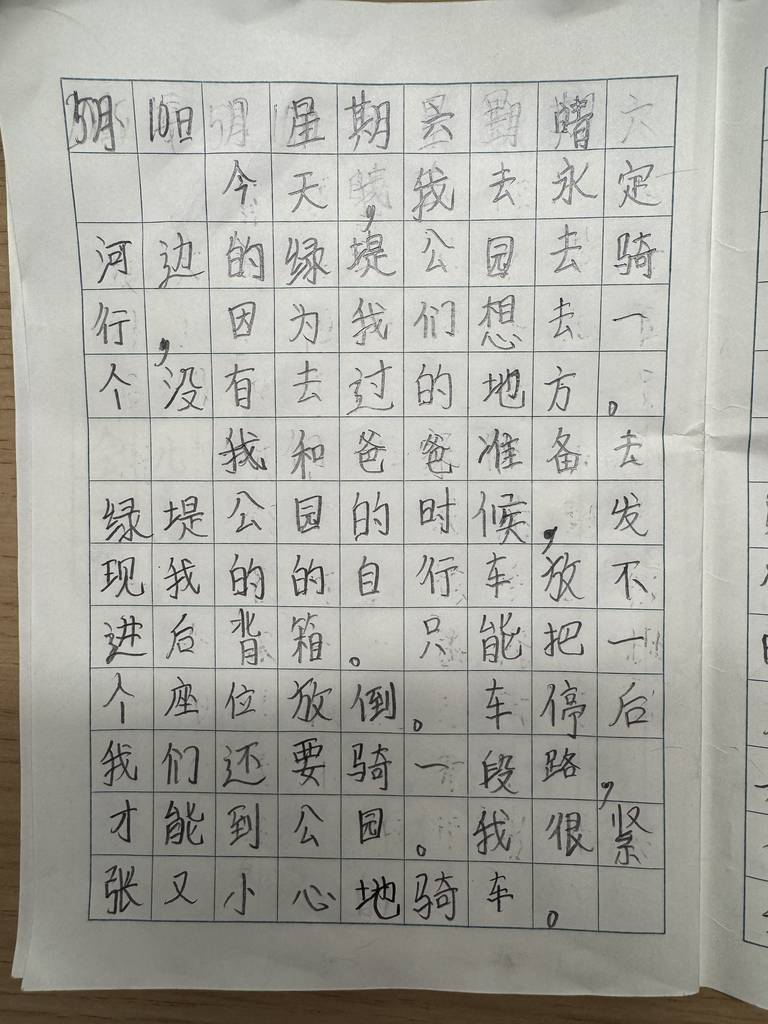 5月10日 星期 晴
今天,我去永定
河边的绿堤公园去骑
行,因为我们想去一
个没有去过的地方。
我和爸爸准备去
绿堤公园的时候,发
现我的的自行车放不
进后背箱。只能把一
个座位放倒。车停后
我们还要骑一段路,
才能到公园。我很紧
张又小心地骑车。